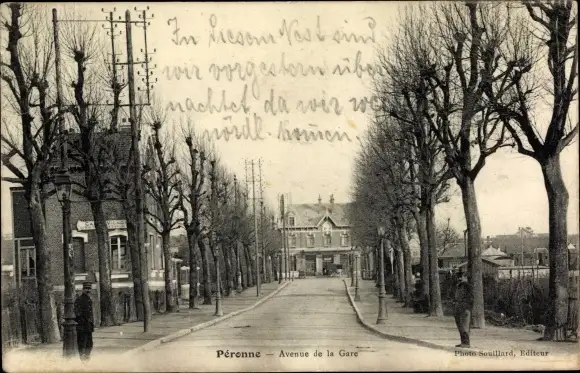 In diesem Nest sind
wir vorgestern über
nachtet da wir
nördl. kamen
Péronne — Avenue de la Gare
Photo Souillard, Editeur